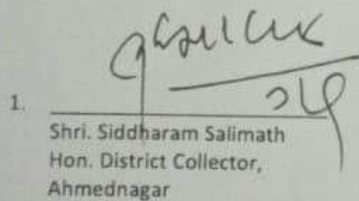 1.
Shri. Siddharam Salimath
Hon. District Collector,
Ahmednagar